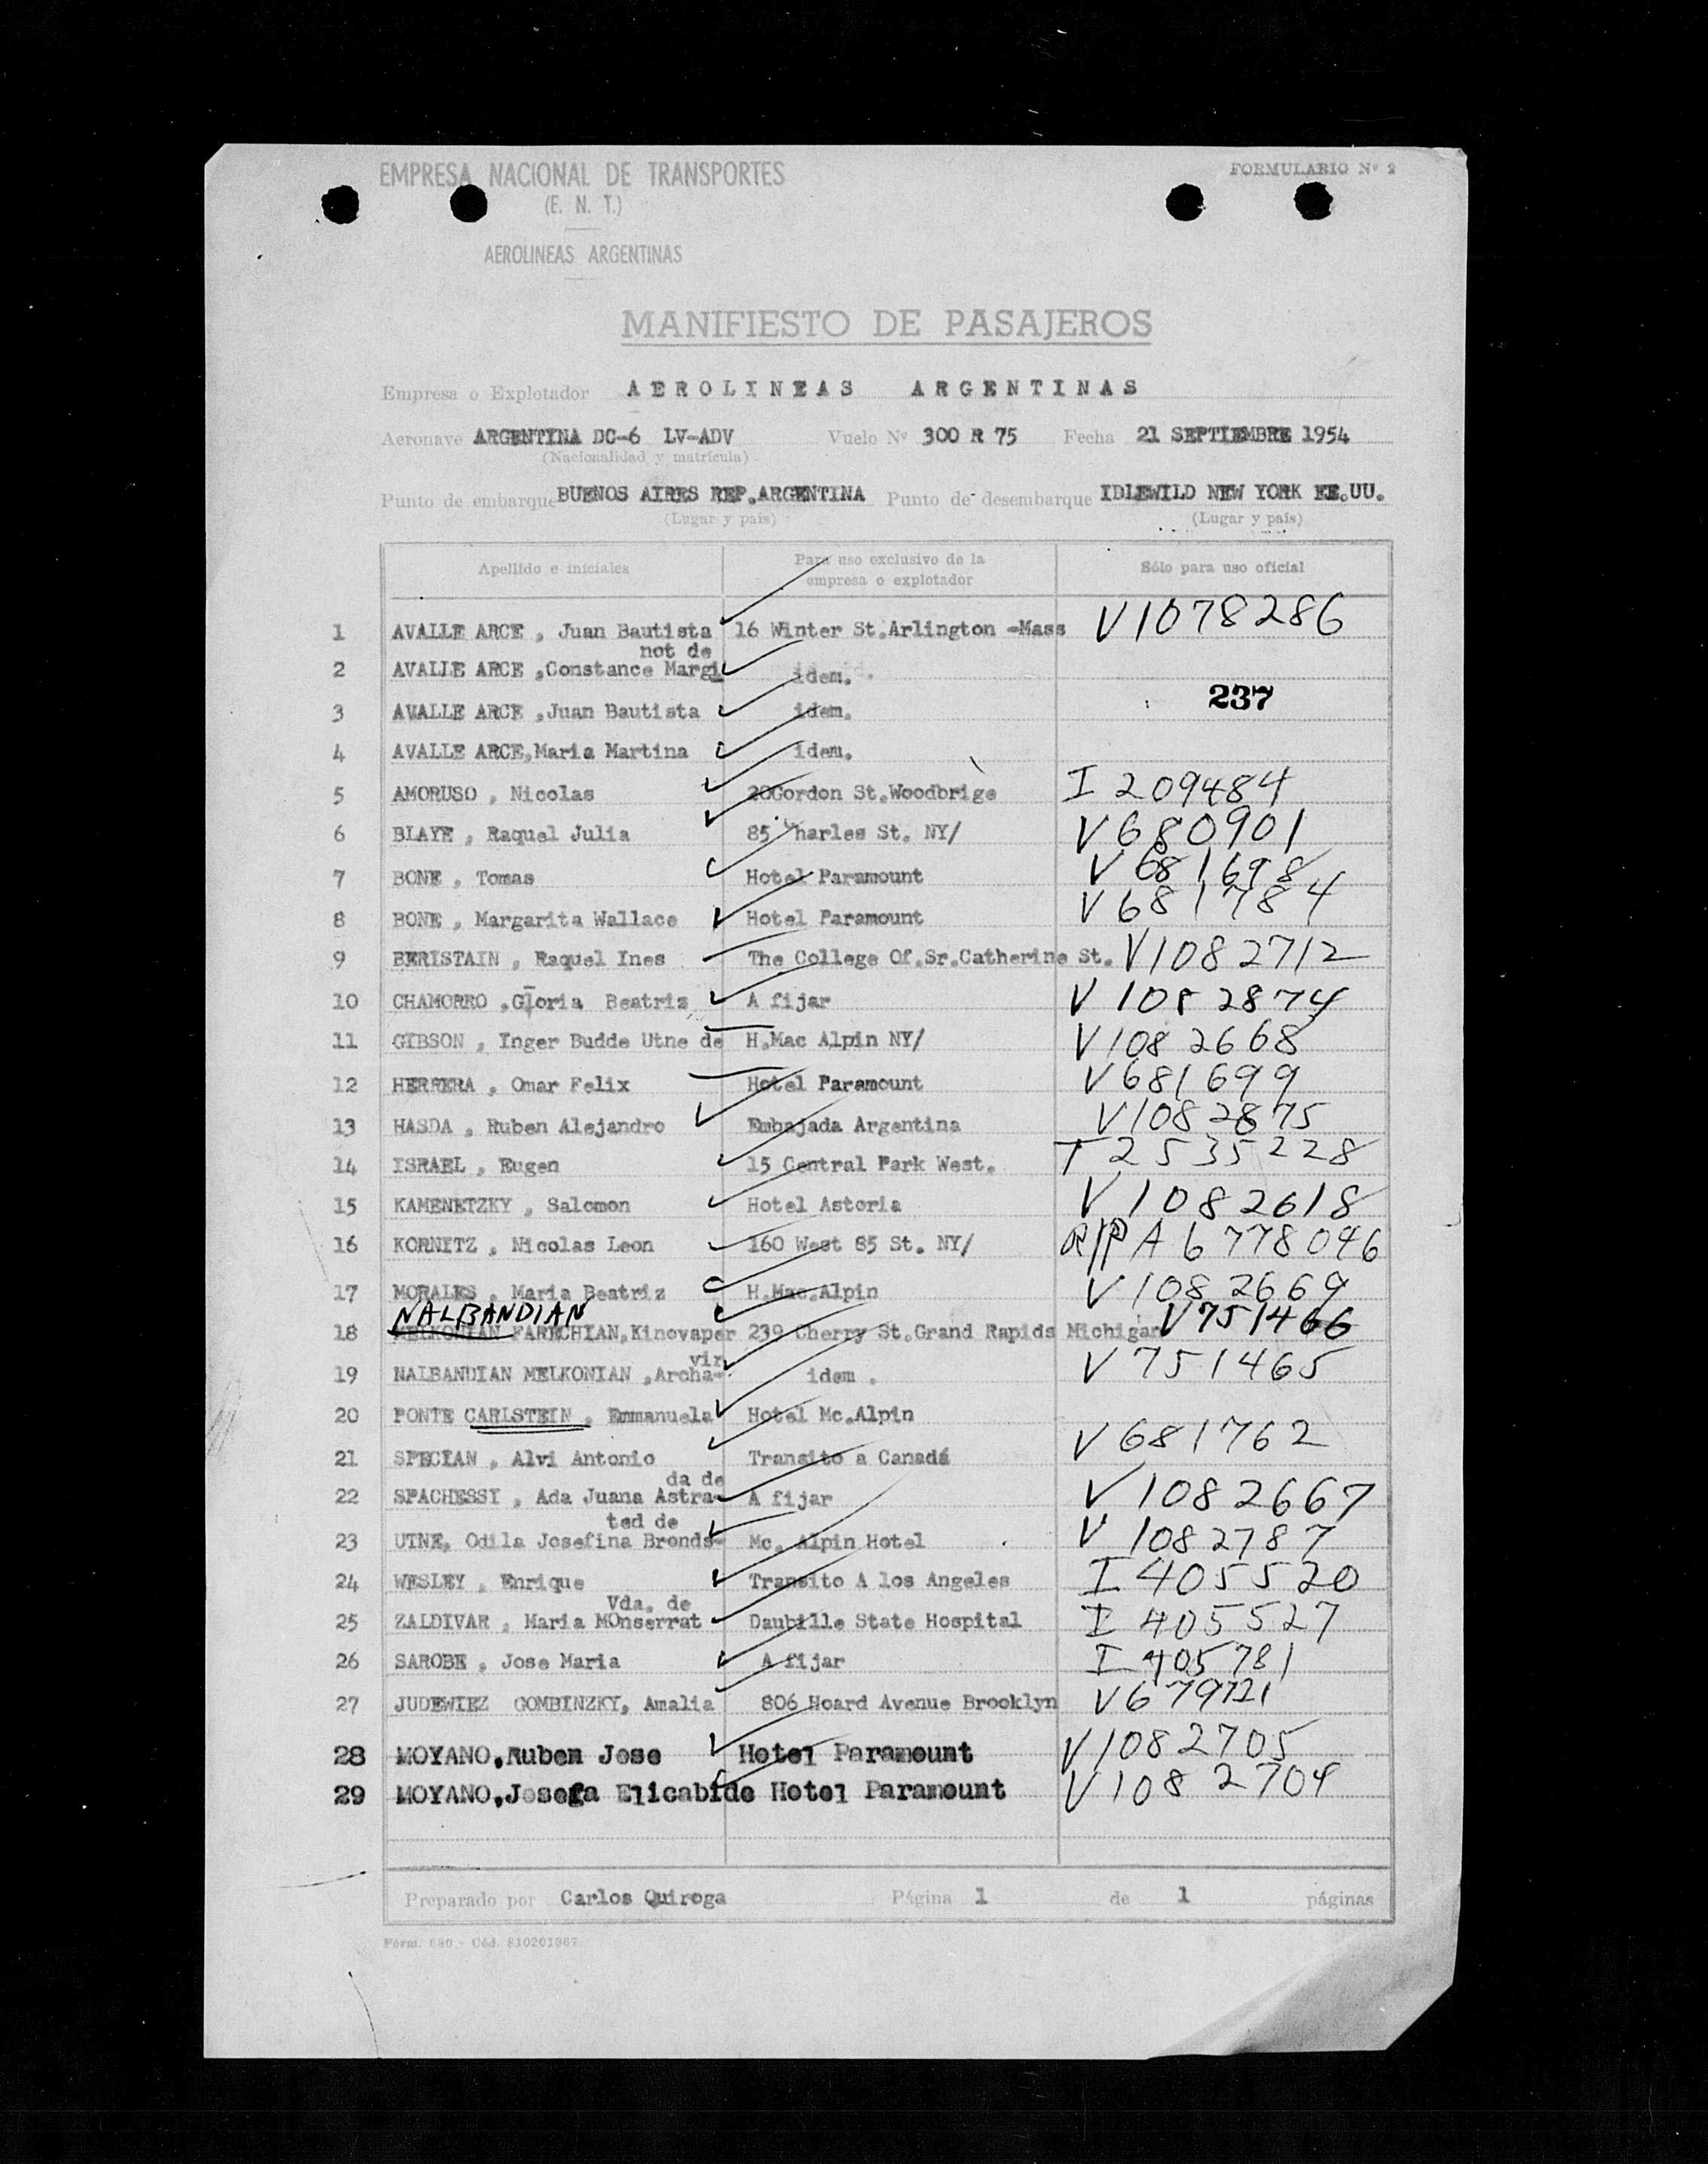 EMPRESA NACIONAL DE TRANSPORTES
FORMULARIO Nº 2
(E. N. T.)
AEROLINEAS ARGENTINAS
MANIFIESTO DE PASAJEROS
Empresa o Explotador AEROLINEAS ARGENTINAS
Aeronave ARGENTINA DC-6 LV-ADV Vuelo Nº 300 R 75 Fecha 21 SEPTIEMBRE 1954
(Nacionalidad y matrícula)
Punto de embarque BUENOS AIRES REP.ARGENTINA Punto de desembarque IDLEWILD NEW YORK EE.UU.
(Lugar y país) (Lugar y país)
Apellido e iniciales Para uso exclusivo de la empresa o explotador Sólo para uso oficial
1 AVALLE ARCE, Juan Bautista 16 Winter St.Arlington -Mass V1078286
not de
2 AVALLE ARCE ,Constance Margi idem.
237
3 AVALLE ARCE ,Juan Bautista idem.
4 AVALLE ARCE,Maria Martina idem.
5 AMORUSO , Nicolas 28Gordon St.Woodbrige I 209484
6 BLAYE , Raquel Julia 85 Charles St. NY/ V680901
7 BONE , Tomas Hotel Paramount V681698
8 BONE , Margarita Wallace Hotel Paramount V681784
9 BERISTAIN , Raquel Ines The College Of.Sr.Catherine St. V1082712
10 CHAMORRO ,Gloria Beatriz A fijar V1082874
11 GIBSON , Inger Budde Utne de H.Mac Alpin NY/ V1082668
12 HERRERA , Omar Felix Hotel Paramount V681699
13 HASDA , Ruben Alejandro Embajada Argentina V1082875
14 ISRAEL , Eugen 15 Central Park West. T2535228
15 KAMENETZKY , Salomon Hotel Astoria V1082618
16 KORNITZ , Nicolas Leon 160 West 85 St. NY/ R/P A6778046
17 MORALES , Maria Beatriz H.Mac.Alpin V1082669
NALBANDIAN
18 MELKONIAN FARECHIAN,Kinovaper 239 Cherry St.Grand Rapids Michigan V751466
vir
19 NALBANDIAN MELKONIAN ,Archa- idem . V751465
20 PONTE CARLSTEIN , Emmanuela Hotel Mc.Alpin
21 SPECIAN , Alvi Antonio Transito a Canadá V681762
da de
22 SPACHESSI , Ada Juana Astra- A fijar V1082667
ted de
23 UTNE, Odila Josefina Bronds- Mc. Alpin Hotel V1082787
24 WESLEY , Enrique Transito A los Angeles I405520
Vda. de
25 ZALDIVAR , Maria MOnserrat Daubille State Hospital I405527
26 SAROBE , Jose Maria A fijar I405781
27 JUDEWIEZ GOMBINZKY, Amalia 806 Hoard Avenue Brooklyn V679721
28 MOYANO,Ruben Jose Hotel Paramount V1082705
29 MOYANO,Josefa Elicabide Hotel Paramount V1082704
Preparado por Carlos Quiroga Página 1 de 1 páginas
Form. 680 - Cód. 810201867